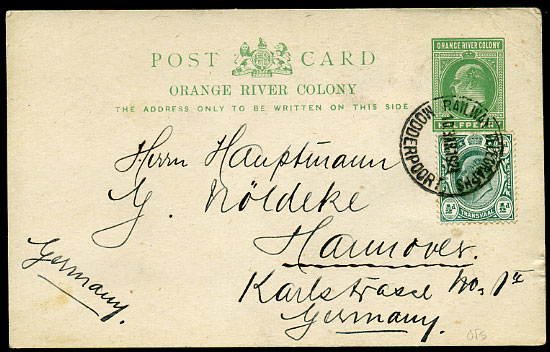 POST CARD
ORANGE RIVER COLONY
THE ADDRESS ONLY TO BE WRITTEN ON THIS SIDE
ORANGE RIVER COLONY
HALFPENNY
RAILWAY TELEGRAPHS
MODDERPOORT
TRANSVAAL
Herrn Hauptmann
G. Nöldeke
Hannover.
Karlstrasse No. 1
Germany.
Germany.